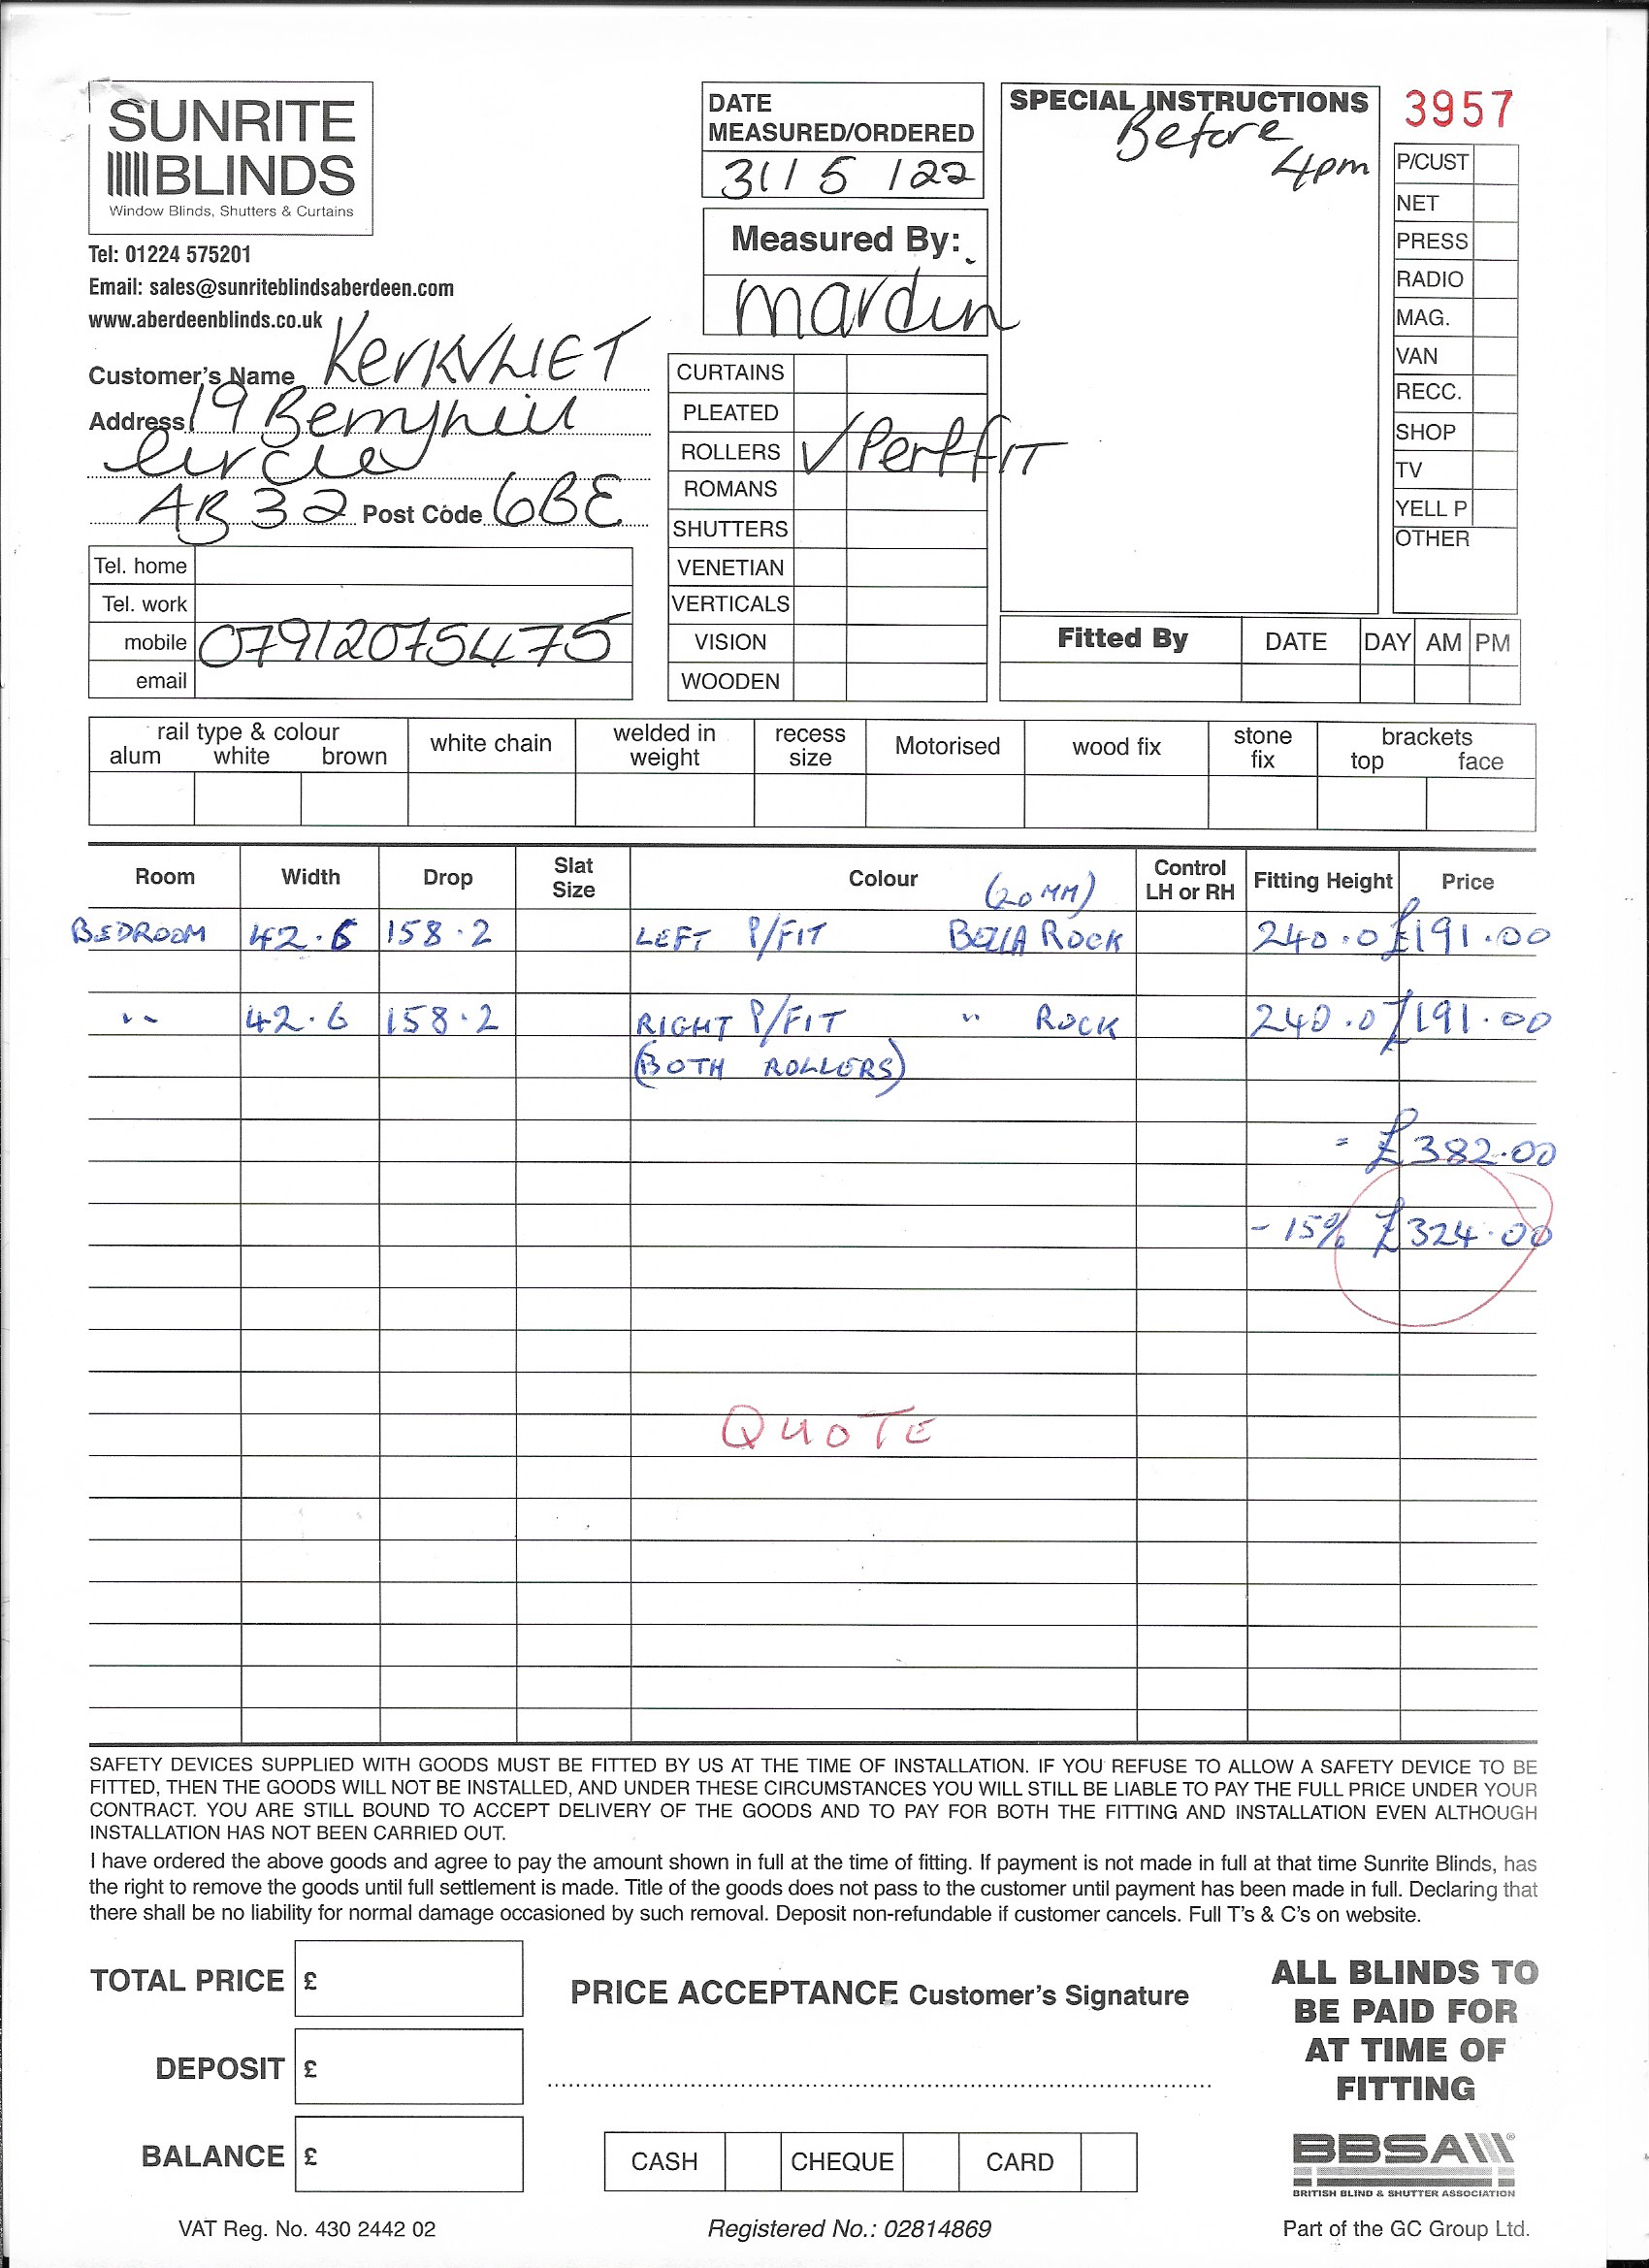 SUNRITE
BLINDS
Window Blinds, Shutters & Curtains
Tel: 01224 575201
Email: sales@sunriteblindsaberdeen.com
www.aberdeenblinds.co.uk
Customer's Name KerKVLIET
Address 19 Berryhill
circle
AB32 Post Code 6BE
Tel. home
Tel. work
mobile 07912075475
email
DATE
MEASURED/ORDERED
31/5/22
Measured By:
CURTAINS
PLEATED
ROLLERS ✓ PerffIT
ROMANS
SHUTTERS
VENETIAN
VERTICALS
VISION
WOODEN
SPECIAL INSTRUCTIONS
Before
4pm
3957
P/CUST
NET
PRESS
RADIO
MAG.
VAN
RECC.
SHOP
TV
YELL P
OTHER
Fitted By DATE DAY AM PM
rail type & colour
alum white brown
white chain
welded in
weight
recess
size
Motorised
wood fix
stone
fix
brackets
top face
Room Width Drop Slat Size Colour (20MM) Control LH or RH Fitting Height Price
BEDROOM 42.6 158.2 LEFT P/FIT BELLA ROCK 240.0 £191.00
" 42.6 158.2 RIGHT P/FIT " ROCK 240.0 £191.00
(BOTH ROLLERS)
= £382.00
- 15% £324.00
QUOTE
SAFETY DEVICES SUPPLIED WITH GOODS MUST BE FITTED BY US AT THE TIME OF INSTALLATION. IF YOU REFUSE TO ALLOW A SAFETY DEVICE TO BE
FITTED, THEN THE GOODS WILL NOT BE INSTALLED, AND UNDER THESE CIRCUMSTANCES YOU WILL STILL BE LIABLE TO PAY THE FULL PRICE UNDER YOUR
CONTRACT. YOU ARE STILL BOUND TO ACCEPT DELIVERY OF THE GOODS AND TO PAY FOR BOTH THE FITTING AND INSTALLATION EVEN ALTHOUGH
INSTALLATION HAS NOT BEEN CARRIED OUT.
I have ordered the above goods and agree to pay the amount shown in full at the time of fitting. If payment is not made in full at that time Sunrite Blinds, has
the right to remove the goods until full settlement is made. Title of the goods does not pass to the customer until payment has been made in full. Declaring that
there shall be no liability for normal damage occasioned by such removal. Deposit non-refundable if customer cancels. Full T's & C's on website.
TOTAL PRICE £
DEPOSIT £
BALANCE £
PRICE ACCEPTANCE Customer's Signature
CASH CHEQUE CARD
ALL BLINDS TO
BE PAID FOR
AT TIME OF
FITTING
BBSA
BRITISH BLIND & SHUTTER ASSOCIATION
VAT Reg. No. 430 2442 02
Registered No.: 02814869
Part of the GC Group Ltd.